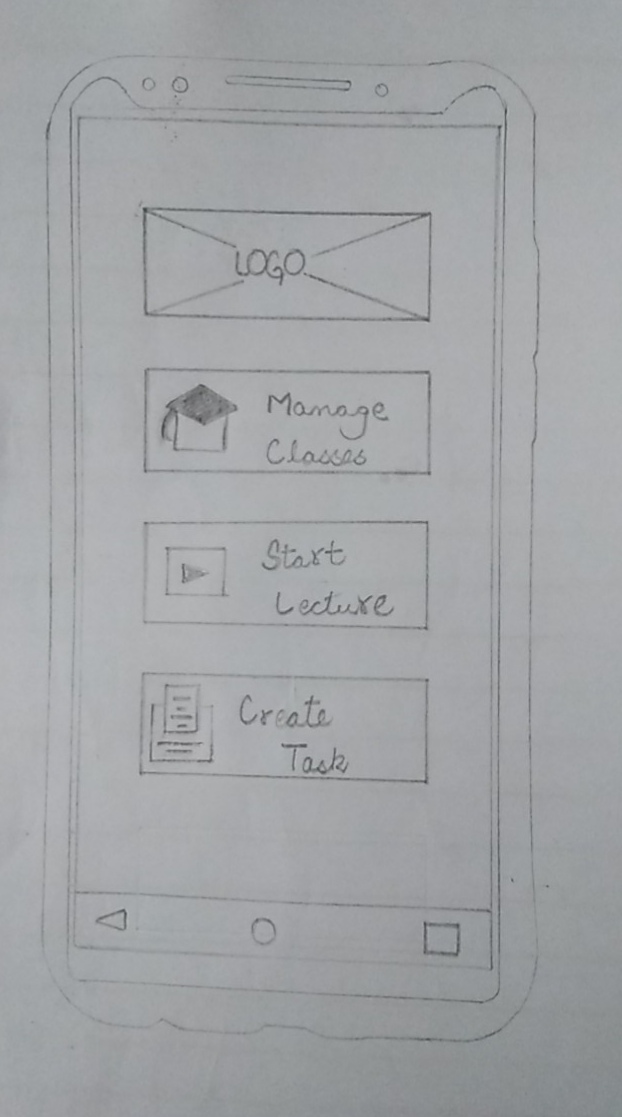 LOGO
Manage
Classes
Start
Lecture
Create
Task